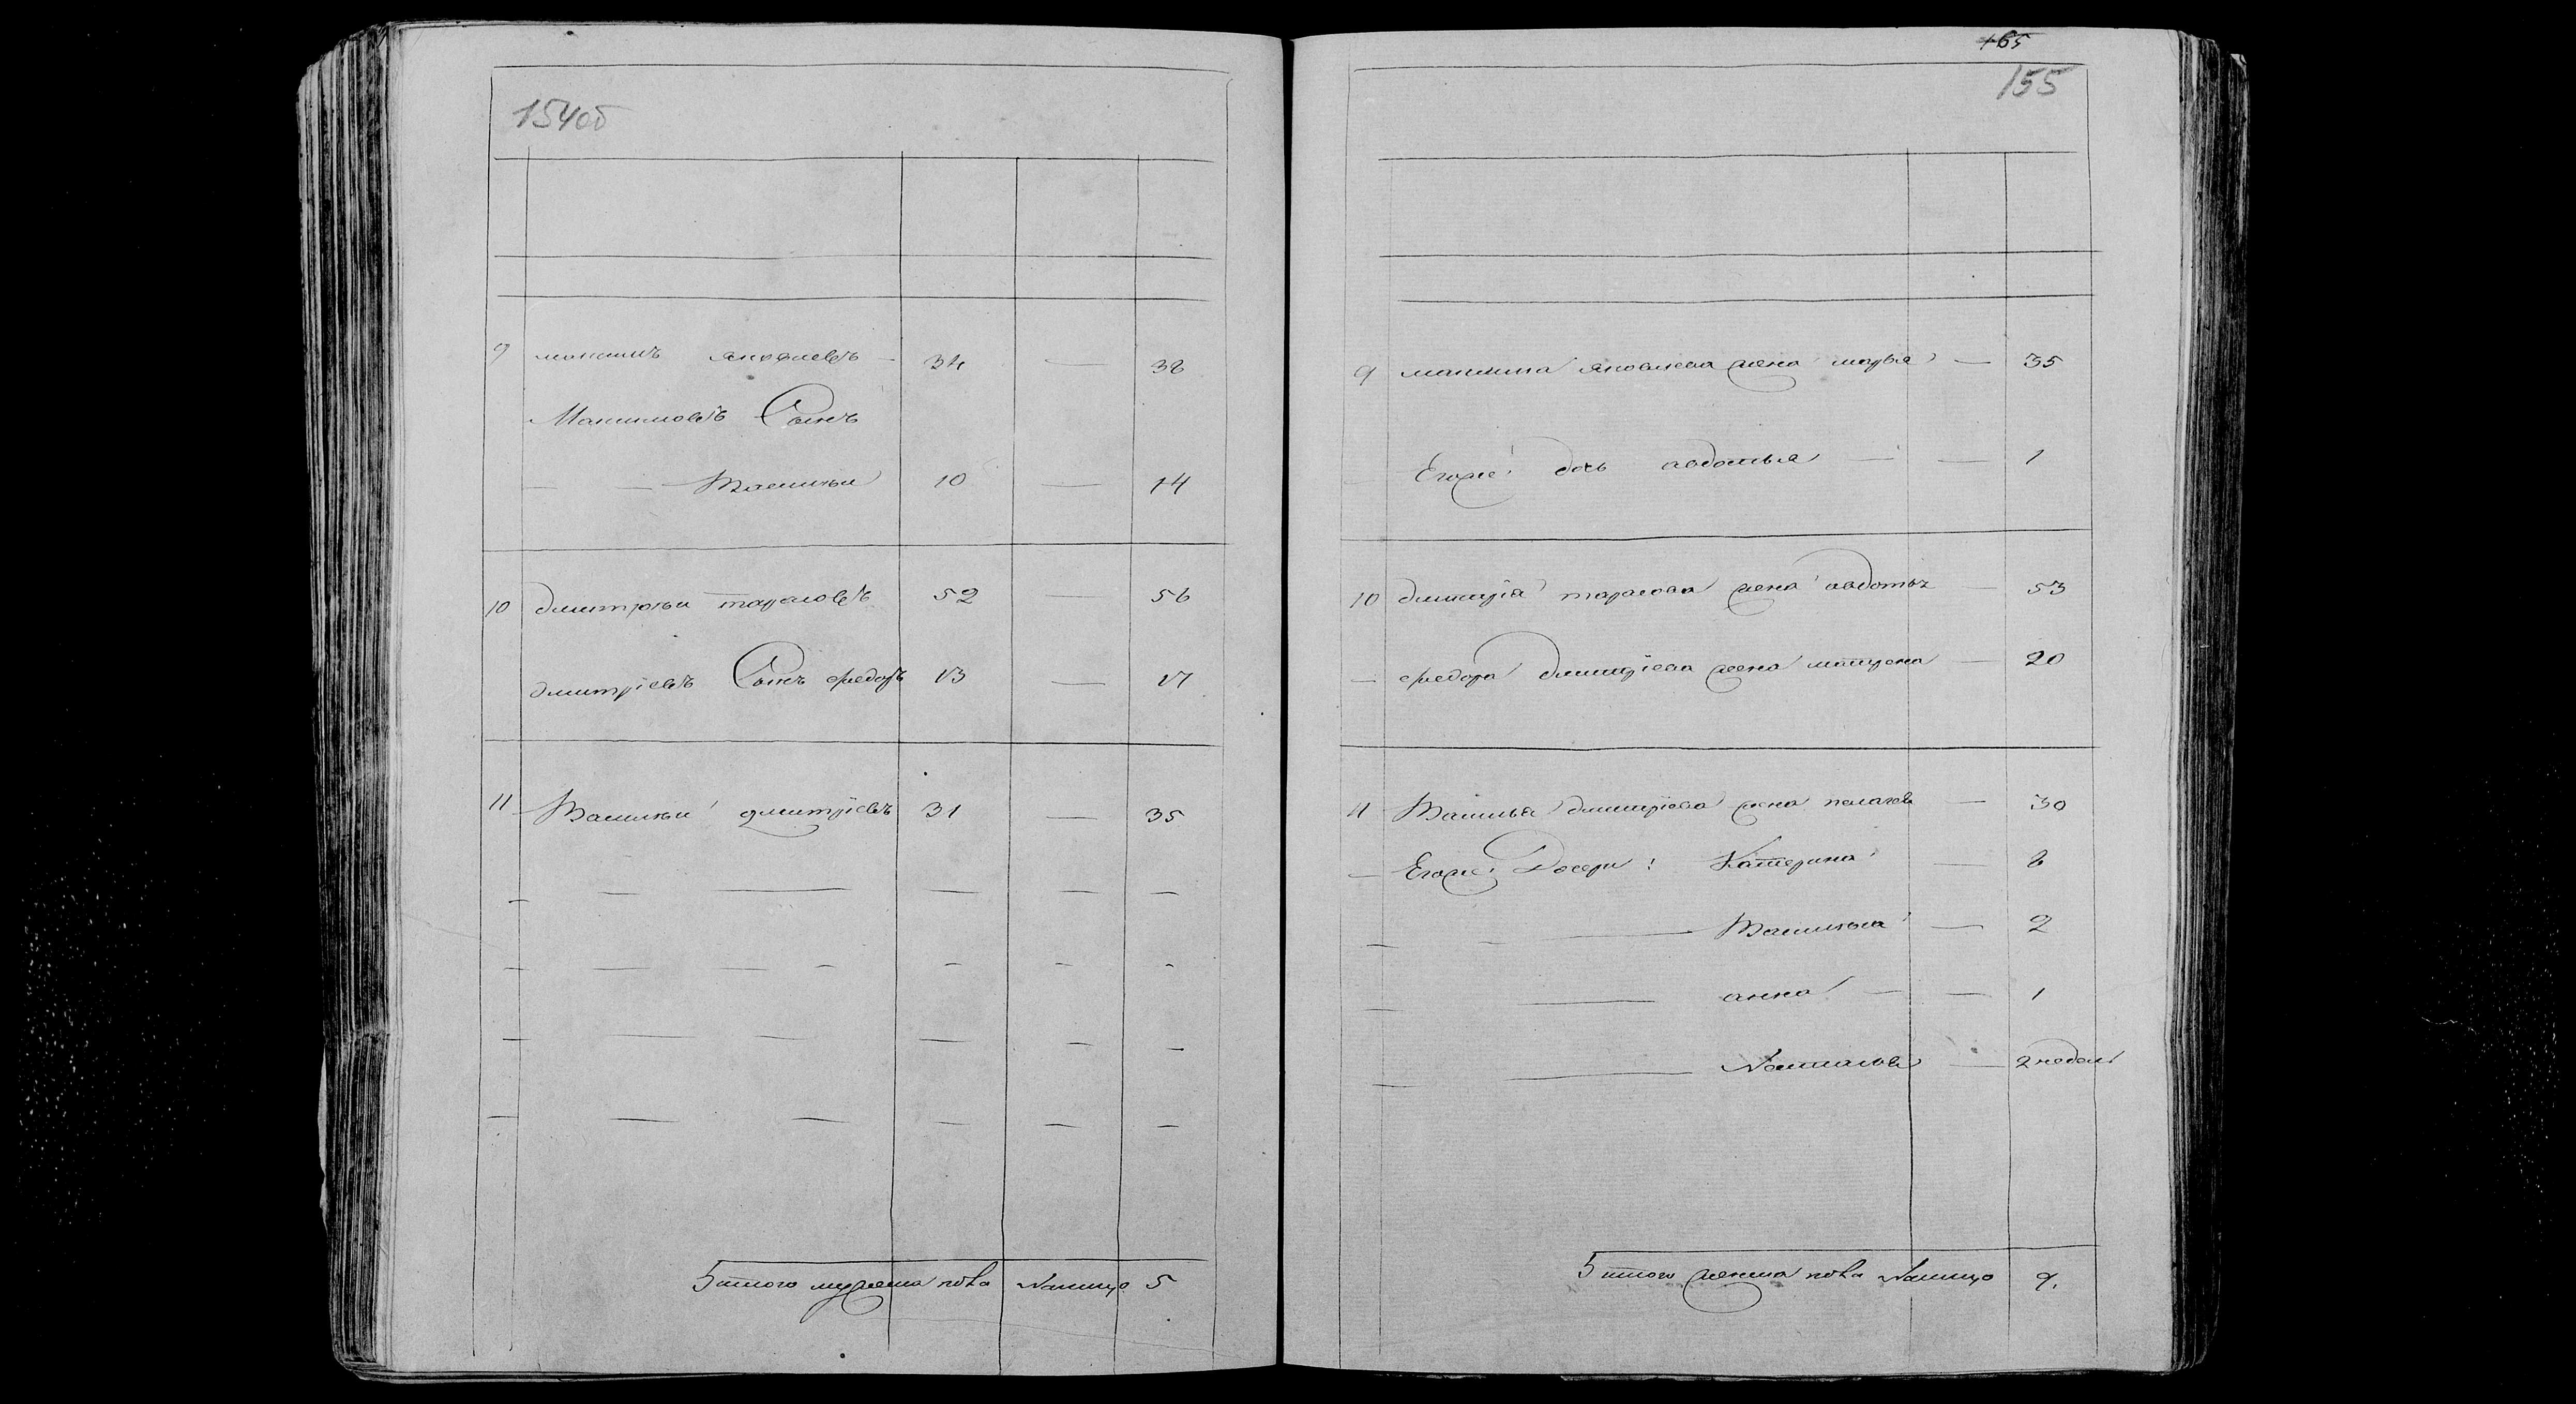 154об
9 максимъ яковлевъ — 34 — 38
Максимовъ Сынъ
— — Василеи 10 — 14
10 дмитреи тарасовъ 52 — 56
дмитріевъ Сынъ федоръ 13 — 17
11 Василеи дмитріевъ 31 — 35
— — — — — —
— — — — — — —
— — — — — —
— — — — — —
итого мужеска пола налицо 5
165
155
9 максима яковлева жена марья — 35
— Егоже дочь авдотья — — 1
10 дмитрія тарасова жена авдотья — 53
— федора дмитріева жена матрена — 20
11 Василья дмитріева жена пелагея — 30
— Егоже Дочери: Катерина — 8
— — — Василиса — 2
— — анна — — 1
— — Наталья — 2 недели
итого женска пола налицо 9.